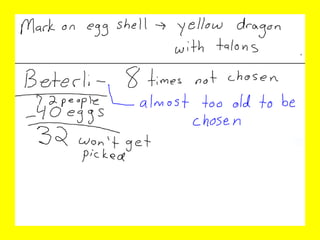 Mark on egg shell → yellow dragon
with talons
Beterli - 8 times not chosen
72 people
- 40 eggs
32 won't get
picked
almost too old to be
chosen